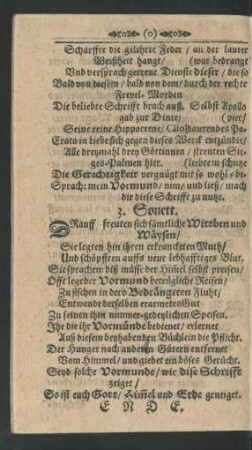 (0)
Schärffte die gelehrte Feder / an der lauter
Weißheit hangt / (war bedrangt
Vnd versprach getreue Dienste dieser / die so
Bald von diesem / bald von dem / durch der rechte
Frevel-Morden
Die beliebte Schrifft brach auß. Selbst Apollo
gab zur Dinte / (vier /
Seine reine Hippocrene /
Erato in liebe sich gegen dieses Werck entzündte
Alle dreymahl drey Göttinnen / streuten Sie-
ges-Palmen hier. (liebte im schutze
Die Gerechtigkeit vergnügt mit so wohl-be-
Sprach: mein Vormund / nim / und ließ / mach
dir diese Schrifft zu nutze.
3. Sonett.
DRauff freuten sich sämtliche Wittben und
Wäysen /
Sie legten hin ihren erkranckten Muth /
Und schöpfften auffs neue lebhafftiges Blut.
Sie sprachen: diß müsse der Himel selbst preisen /
Offt leget der Vormund beträgliche Reisen /
Zu fischen in dero Bedrängeten Fluht /
Entwendt derselben erarmetes Gut
Zu seinen ihm nimmer-gedeylichen Speisen.
Ihr die ihr Vormünde bedienet / erlernet
Auß diesem beyhabenden Büchlein die Pflicht.
Der Hunget nach anderen Gütern entfernet
Vom Himmel / und giebet ein böses Gerücht.
Seyd solche Vormunde / wie dise Schrifft
zeiget /
So ist euch Gott / Himel und Erde geneiget.
E N D E.